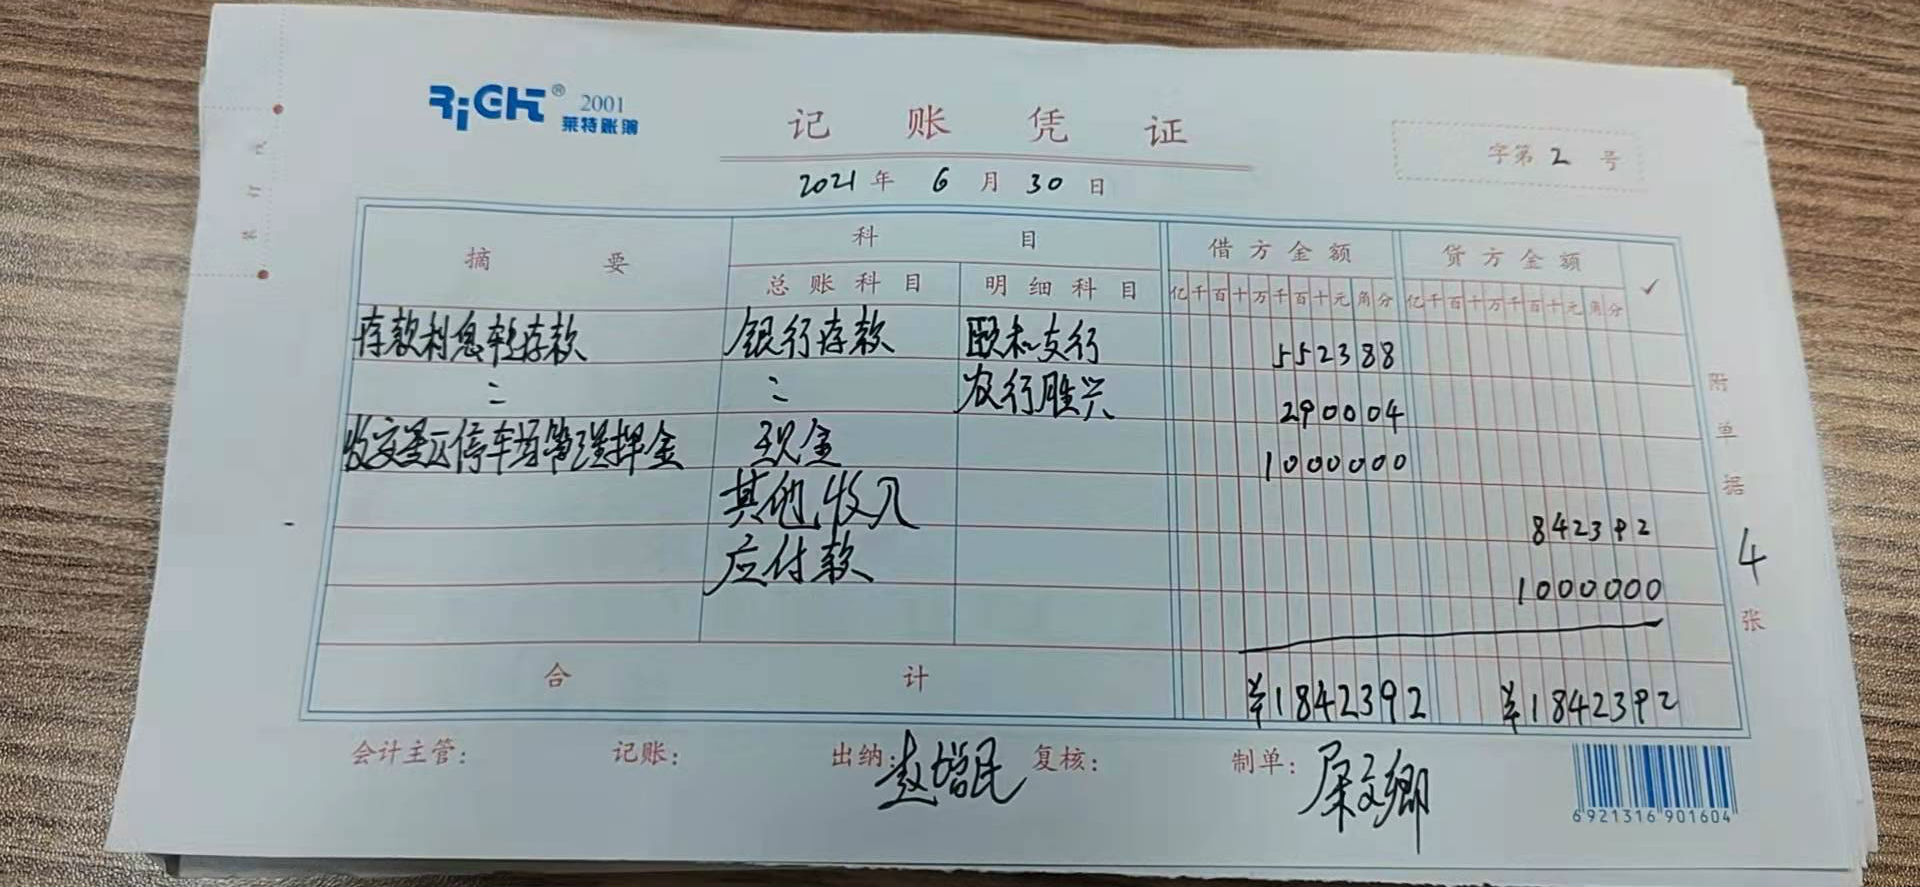 RiGHT® 2001
莱特账簿
记账凭证
字第 2 号
2021 年 6 月 30 日
摘要 科目 借方金额 贷方金额 ✓
总账科目 明细科目 亿千百十万千百十元角分 亿千百十万千百十元角分
存款利息转存款 银行存款 支行 552388
〃 〃 农行胜兴 290004
收 停车场管理押金 现金 1000000
其他收入 842392
应付款 1000000
合计 ¥1842392 ¥1842392
附单据 4 张
会计主管: 记账: 出纳: 赵增民 复核: 制单: 文卿
6 921316 901604
装订线